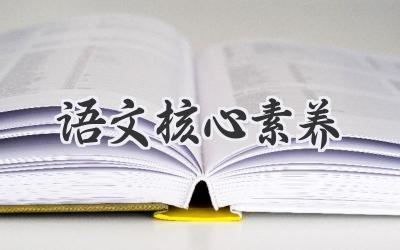 语文核心素养